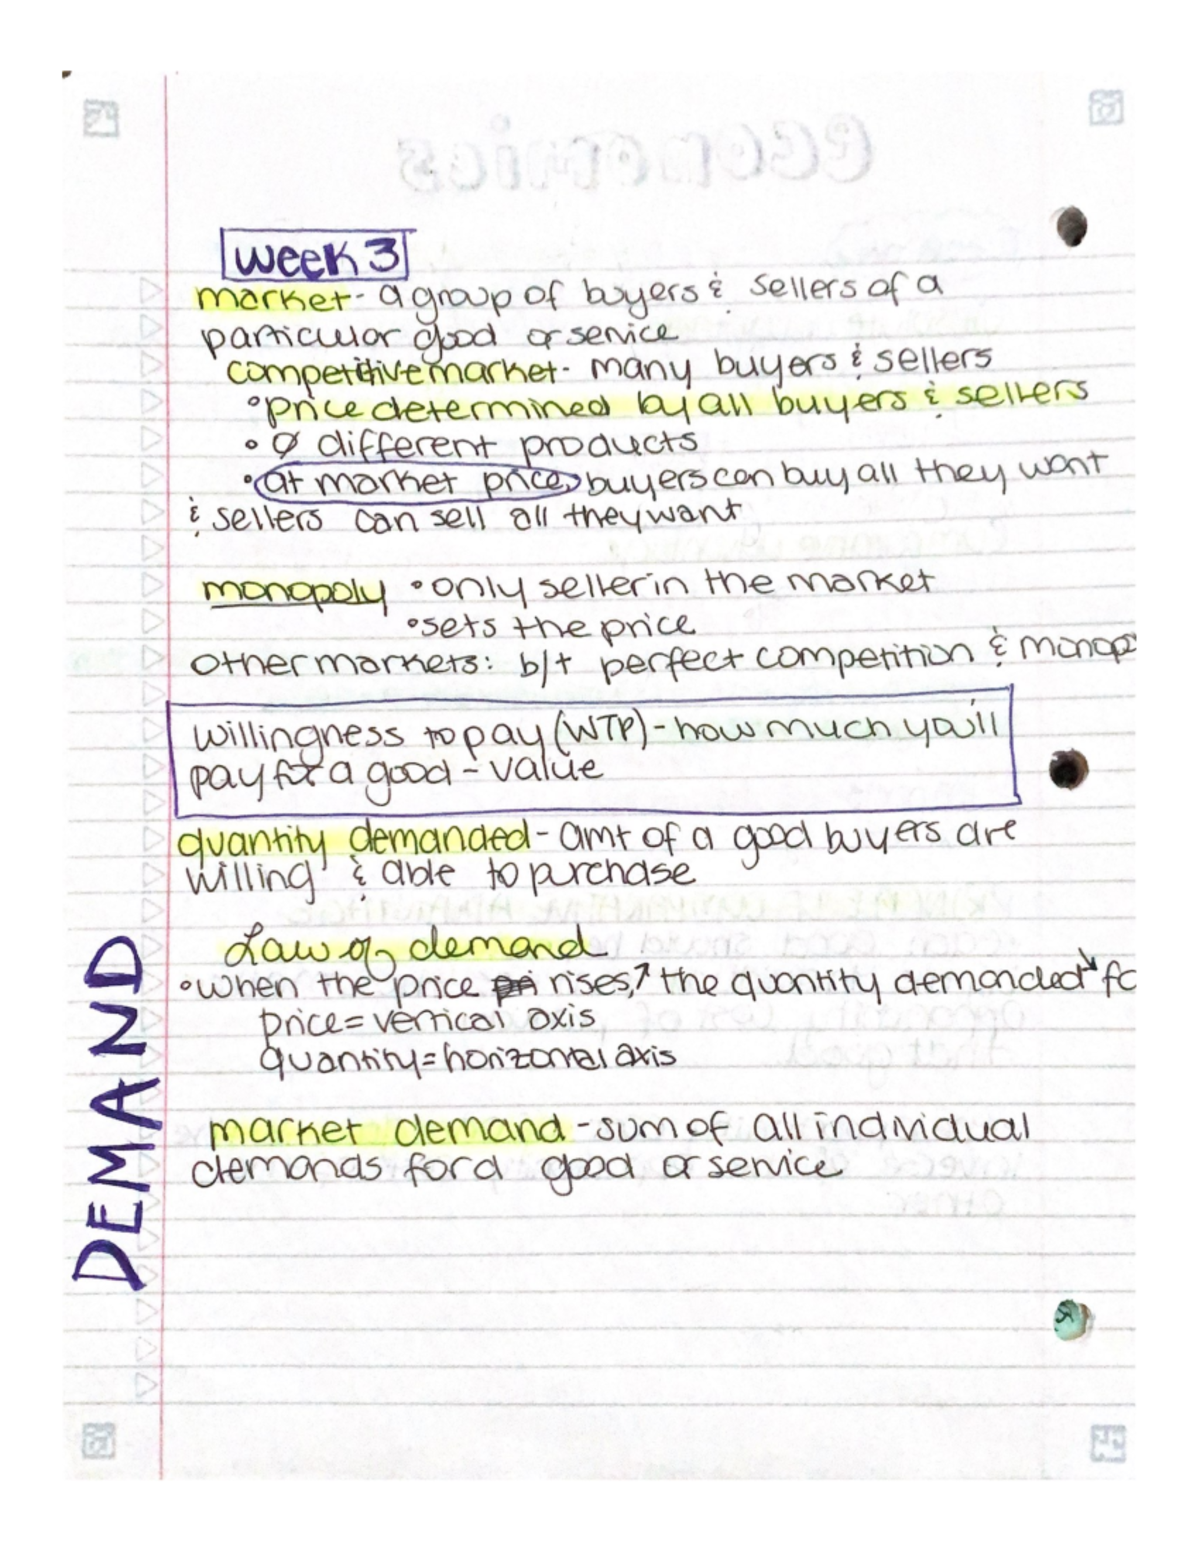 week 3
market - a group of buyers & sellers of a
particular good or service
competitive market - many buyers & sellers
• price determined by all buyers & sellers
• Ø different products
• at market price, buyers can buy all they want
& sellers can sell all they want
monopoly • only seller in the market
• sets the price
other markets: b/t perfect competition & monop
willingness to pay (WTP) - how much you'll
pay for a good - value
quantity demanded - amt of a good buyers are
willing & able to purchase
DEMAND
Law of demand
• when the price rises,↗ the quantity demanded↘ fa
price = vertical axis
quantity = horizontal axis
market demand - sum of all individual
demands for a good or service